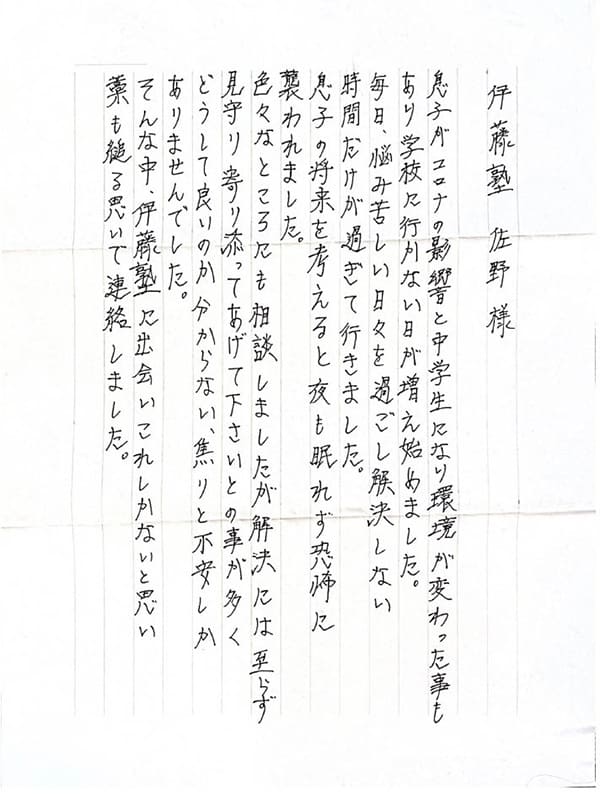 伊藤塾 佐野様
息子がコロナの影響と中学生になり環境が変わった事も
あり学校に行かない日が増え始めました。
毎日、悩み苦しい日々を過ごし解決しない
時間だけが過ぎて行きました。
息子の将来を考えると夜も眠れず恐怖に
襲われました。
色々なところにも相談しましたが解決には至らず
見守り寄り添ってあげて下さいとの事が多く
どうして良いのか分からない、焦りと不安しか
ありませんでした。
そんな中、伊藤塾に出会いこれしかないと思い
藁も縋る思いで連絡しました。